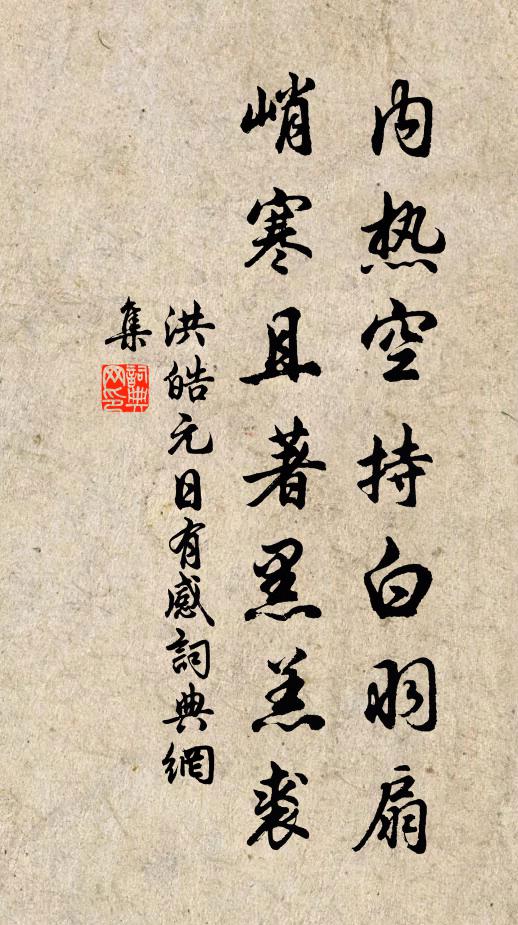 内热空持白羽扇
峭寒且著黑羔裘
洪皓元日有感詞典網
集
詞典
网印